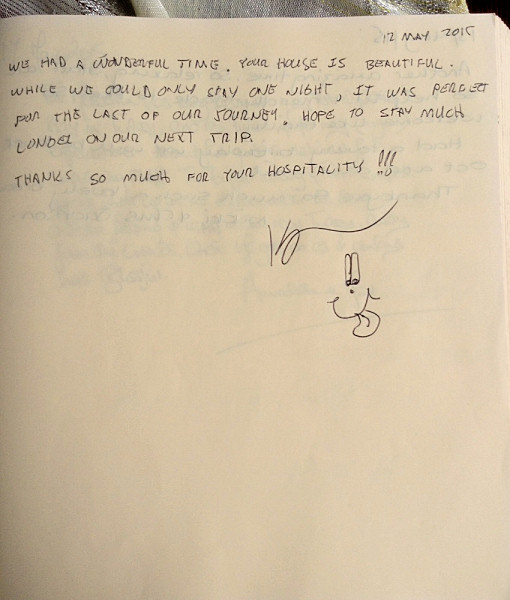 12 MAY 2015
WE HAD A WONDERFUL TIME. YOUR HOUSE IS BEAUTIFUL.
WHILE WE COULD ONLY STAY ONE NIGHT, IT WAS PERFECT
FOR THE LAST OF OUR JOURNEY. HOPE TO STAY MUCH
LONGER ON OUR NEXT TRIP.
THANKS SO MUCH FOR YOUR HOSPITALITY !!!